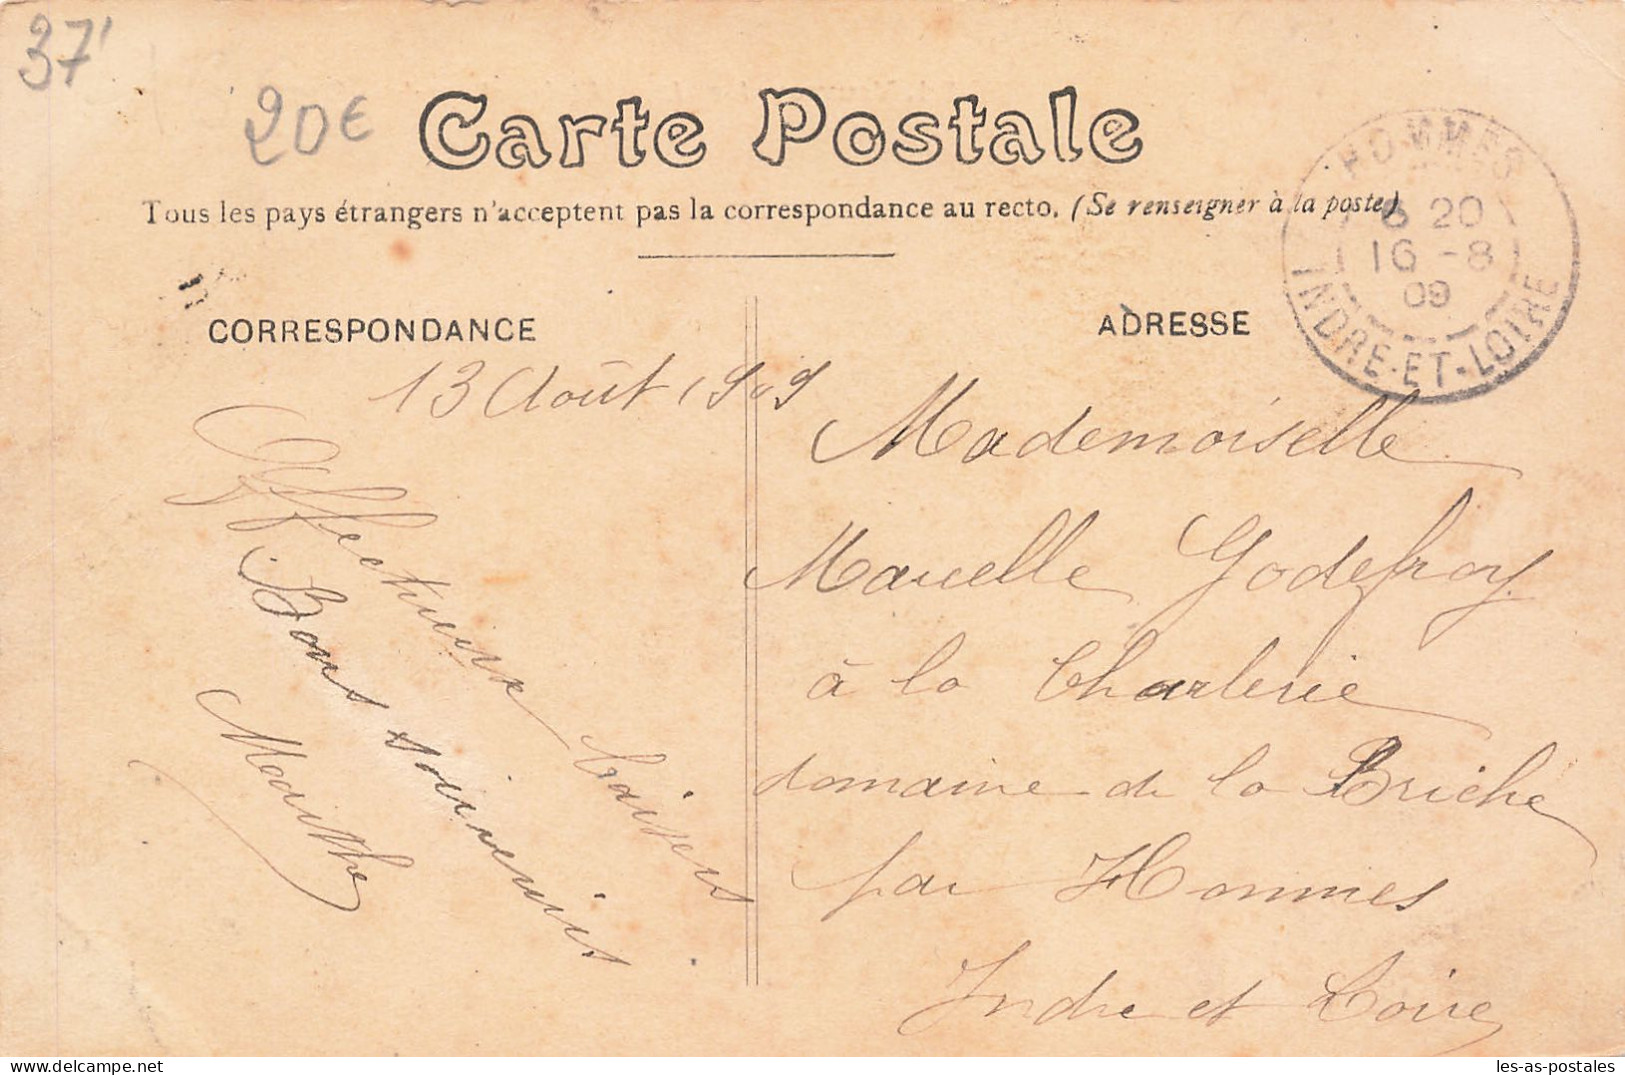 37'
20€
Carte Postale
Tous les pays étrangers n'acceptent pas la correspondance au recto. (Se renseigner à la poste)
HOMMES
6 20
16 -8
09
INDRE-ET-LOIRE
CORRESPONDANCE
13 Août 1909
Affectueux baisers
Bons souvenirs
Marthe
ADRESSE
Mademoiselle
Marcelle Godefroy
à la Charlerie
domaine de la Briche
par Hommes
Indre et Loire
les-as-postales